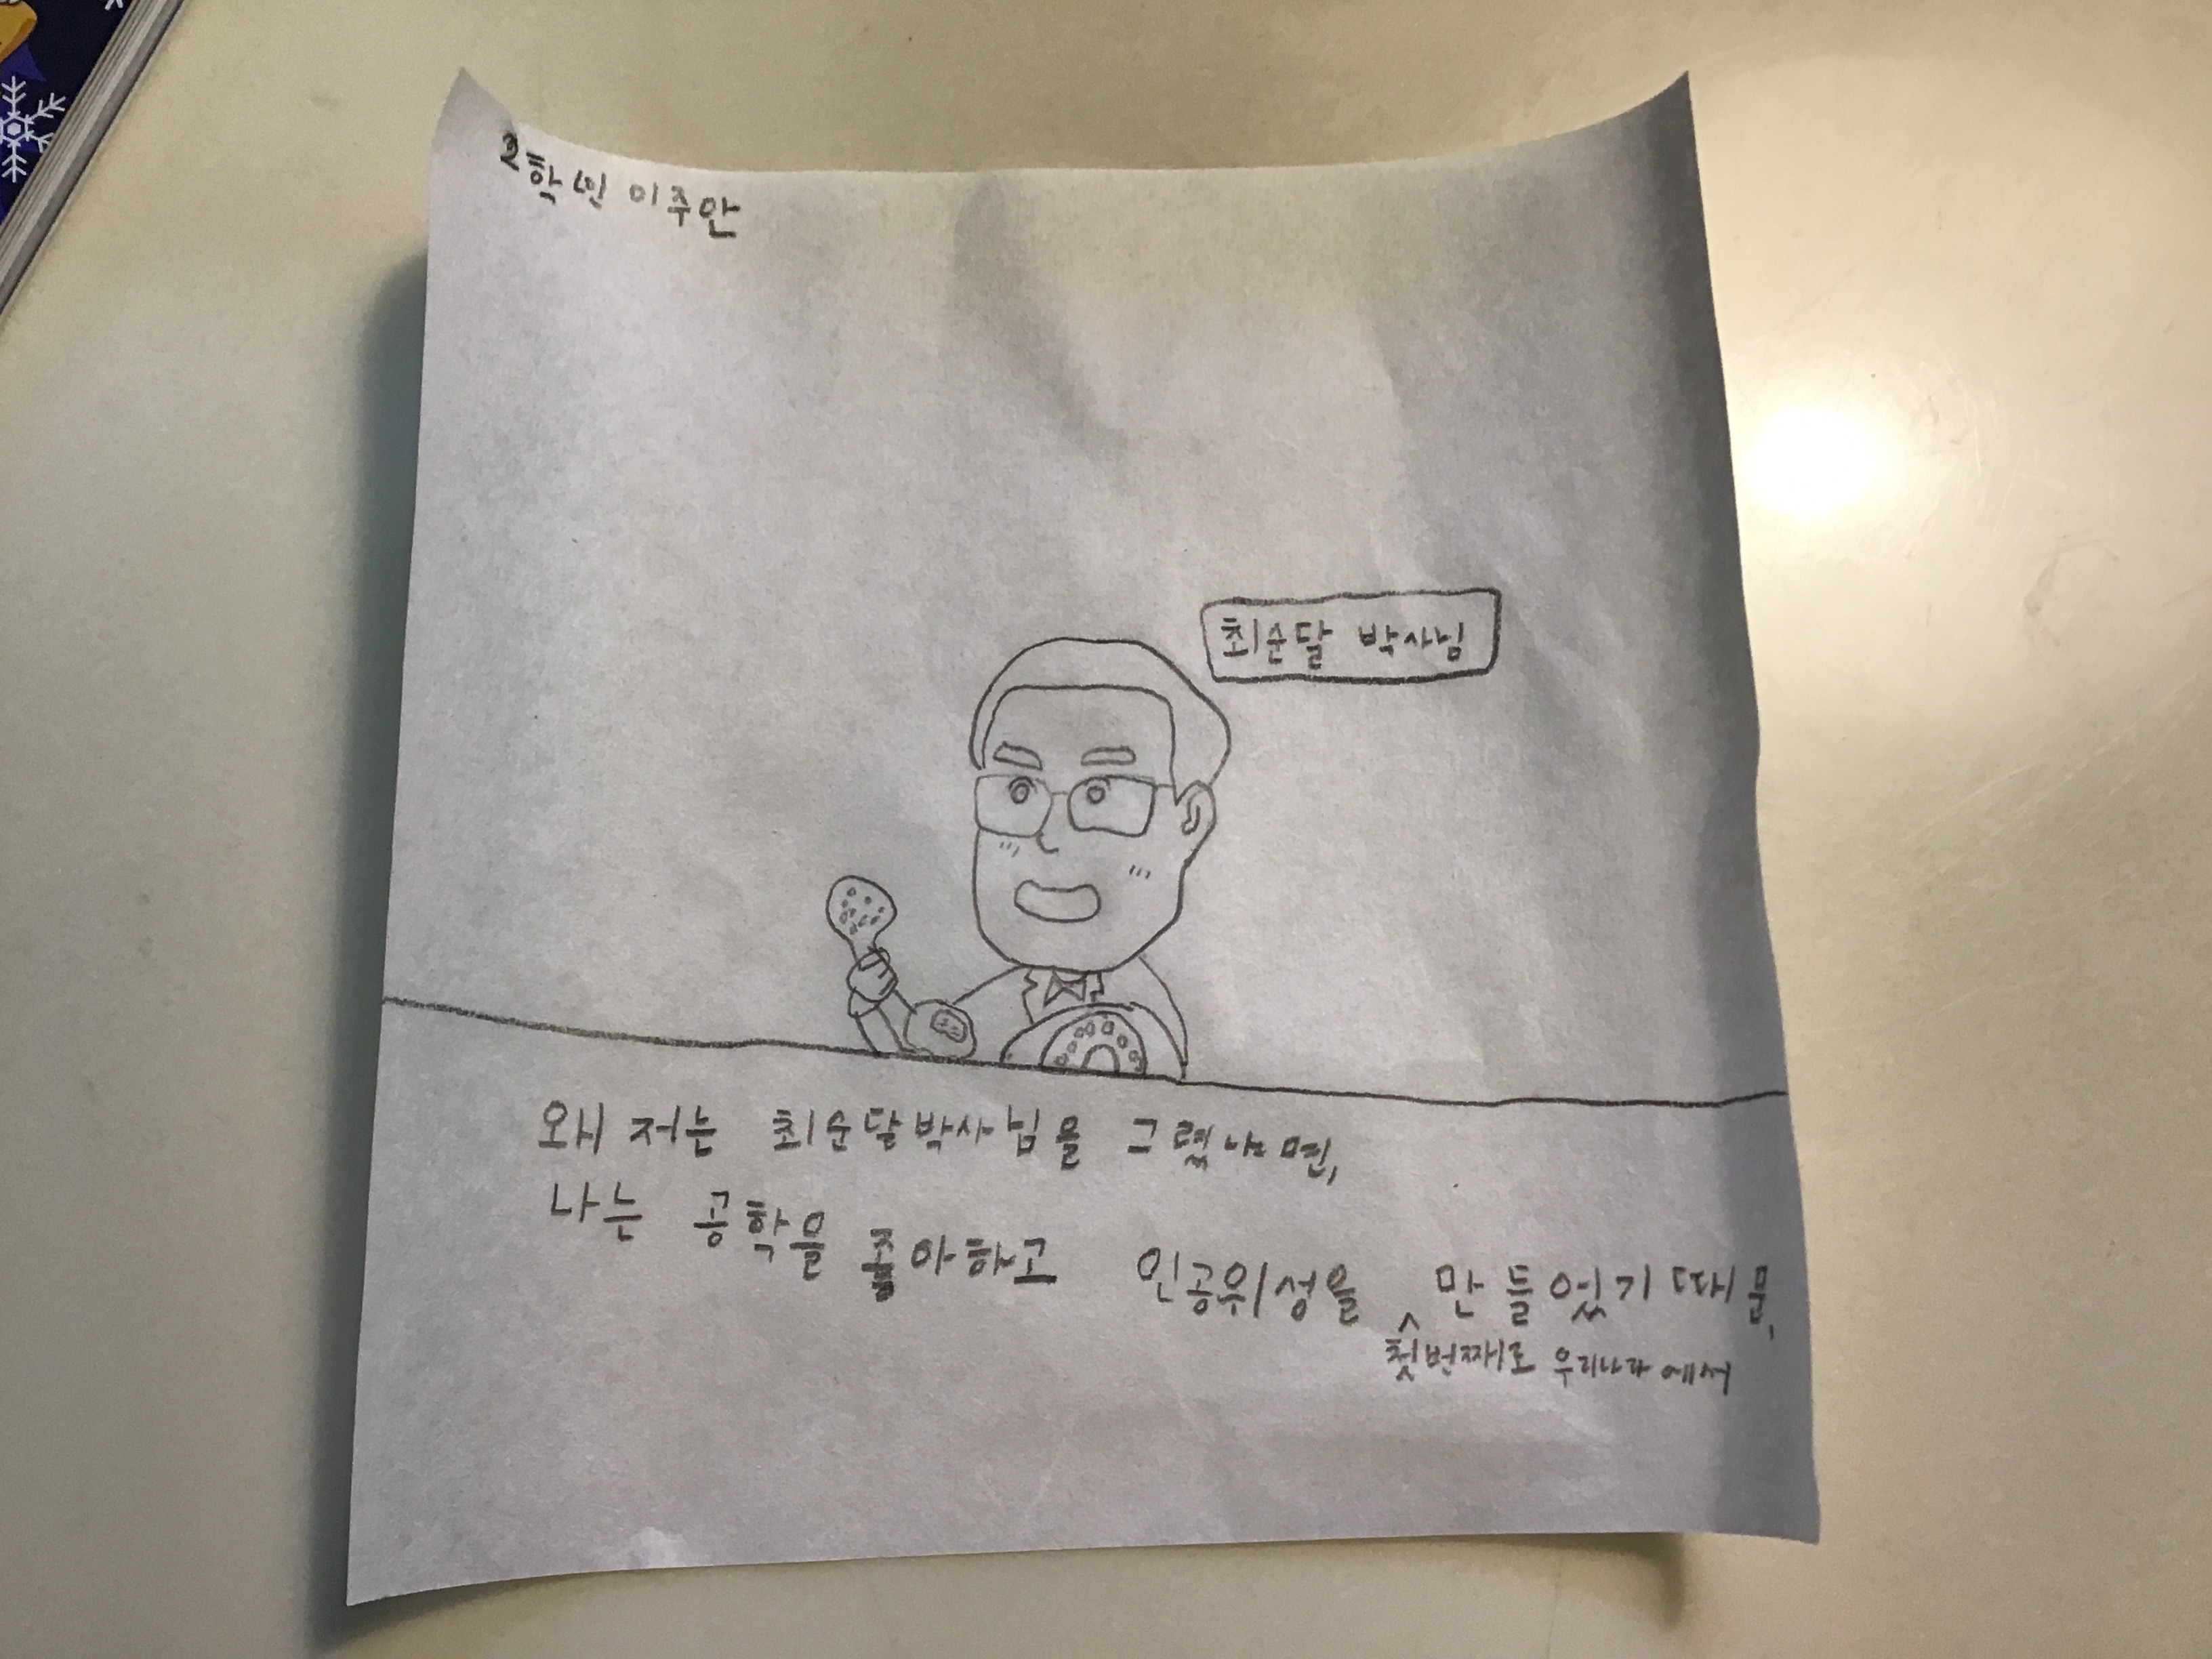 2학년 이주안
최순달 박사님
왜 저는 최순달박사님을 그렸냐면,
나는 공학을 좋아하고 인공위성을 만들었기 때문,
^ 첫번째로 우리나라에서